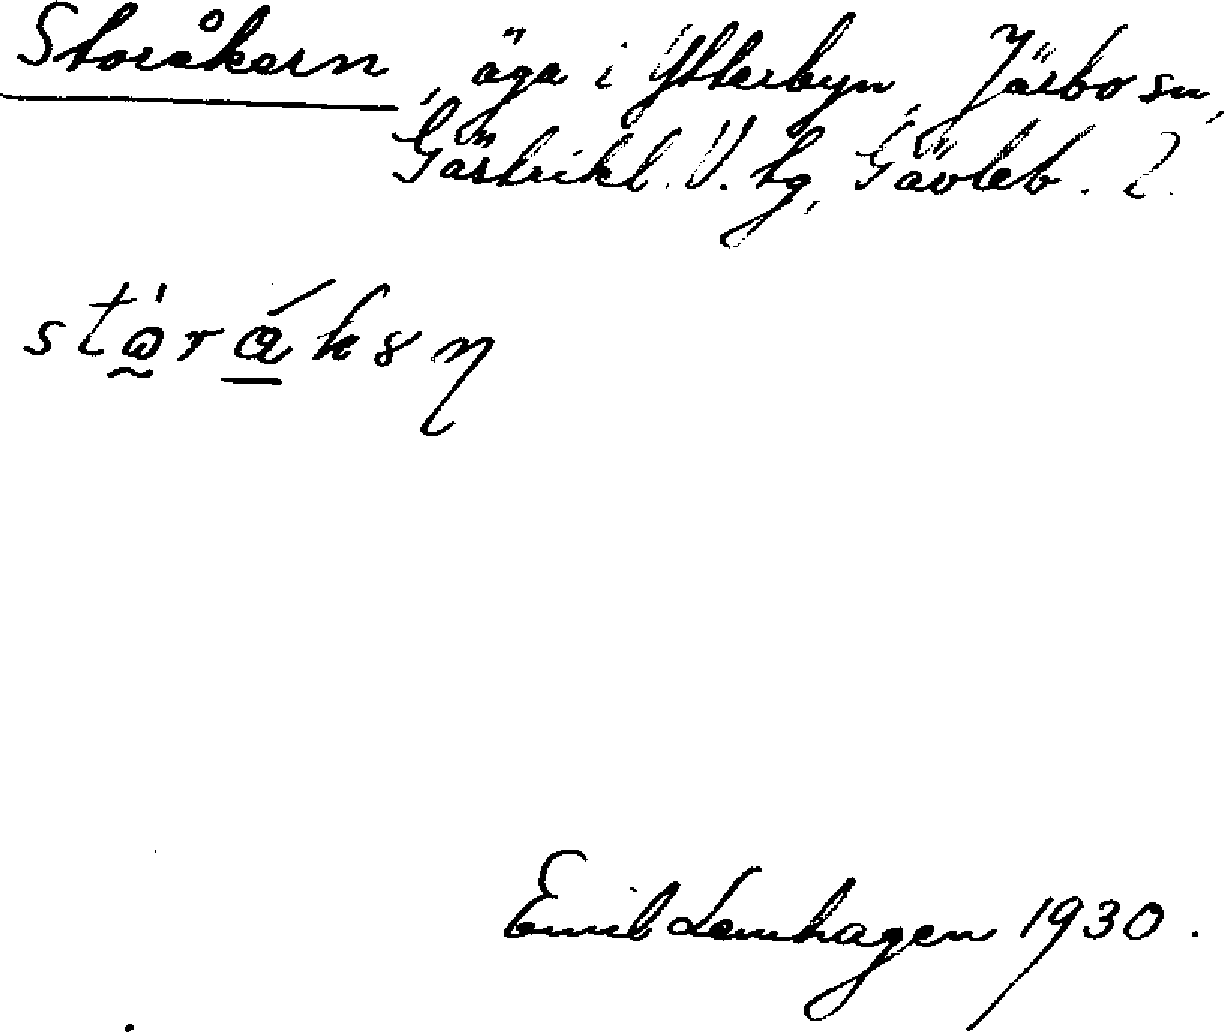 Storåkern, äga i Ytterbyn, Järbo sn,
Gästrikl. V. tg, Gävleb. l.
Emil Lemhagen 1930.